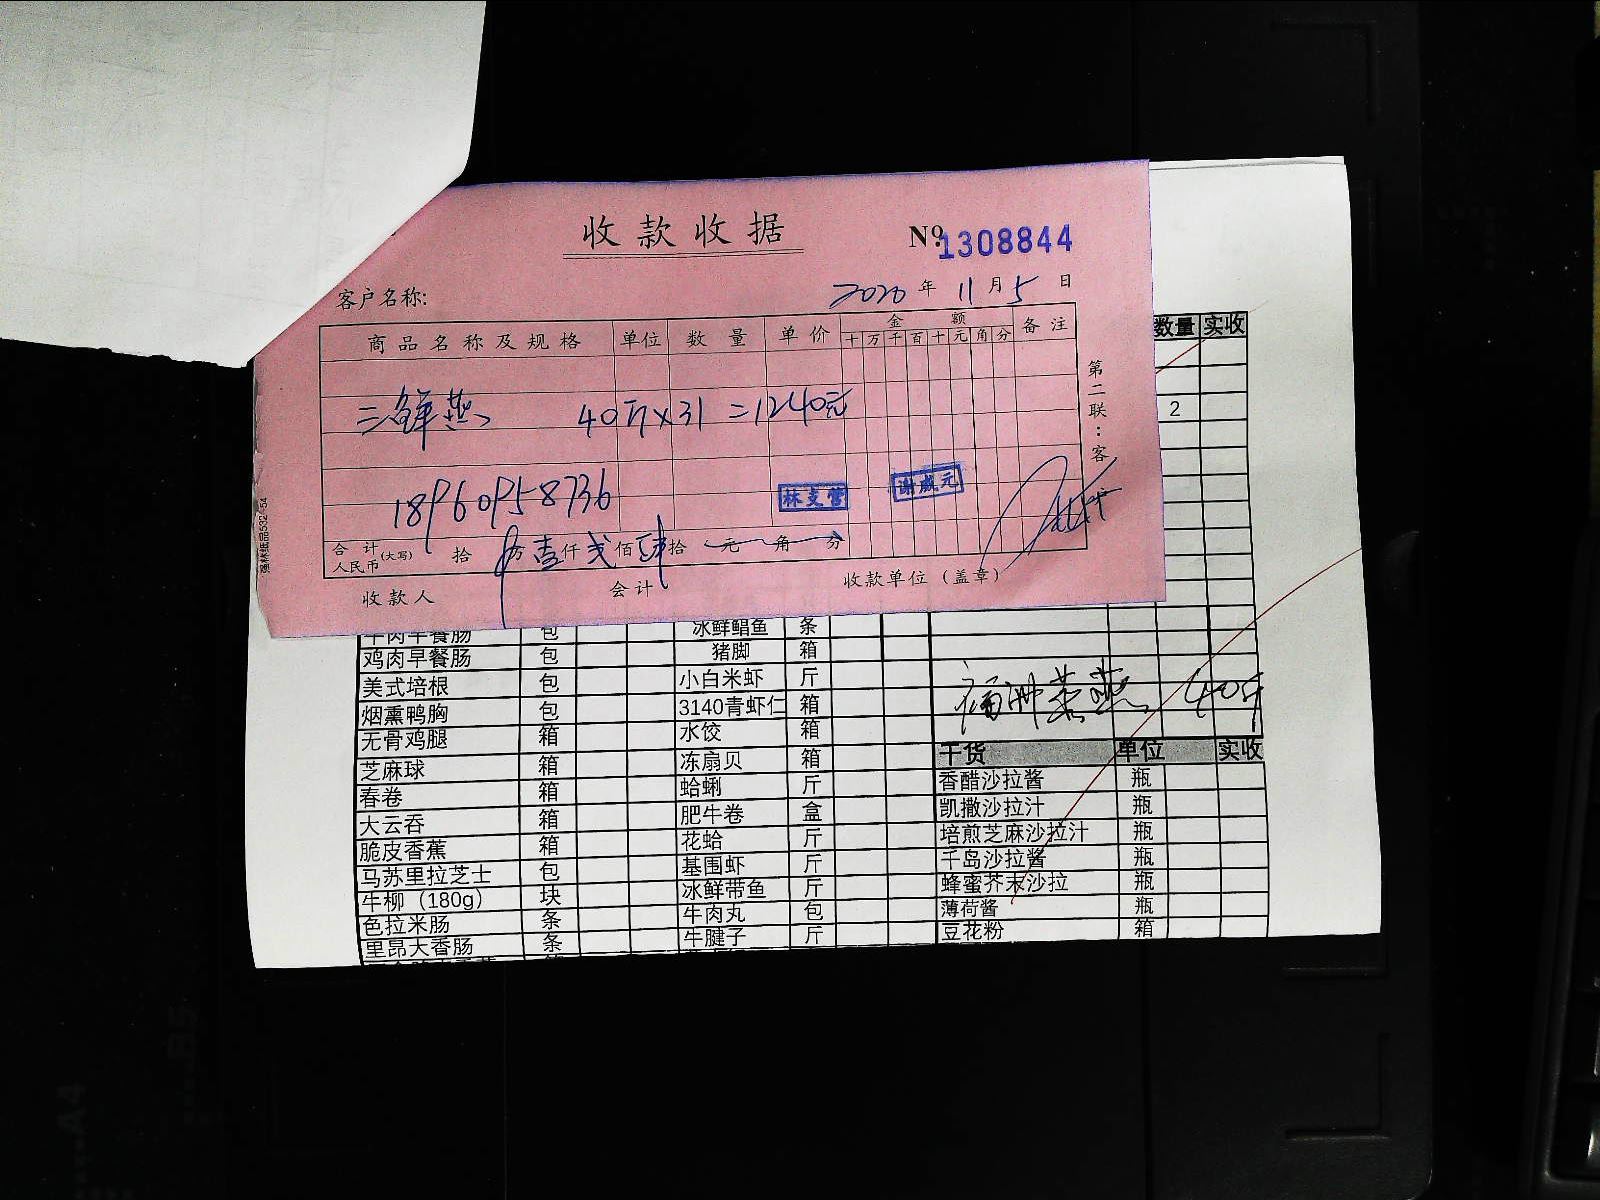 收款收据
Nº 1308844
客户名称: 2020年11月5日
商品名称及规格 单位 数量 单价 金额 备注
十 万 千 百 十 元 角 分
三鲜燕 40斤×31=1240元
18960958736
林支营 谢威元
合计人民币(大写) 拾 万壹仟贰佰肆拾 元 角 分
收款人 会计 收款单位(盖章)
第二联:客
数量 实收
2
牛肉早餐肠 包 冰鲜鲳鱼 条
鸡肉早餐肠 包 猪脚 箱
美式培根 包 小白米虾 斤
烟熏鸭胸 包 3140青虾仁 箱 福州 燕 40斤
无骨鸡腿 箱 水饺 箱
干货 单位 实收
芝麻球 箱 冻扇贝 箱 香醋沙拉酱 瓶
春卷 箱 蛤蜊 斤 凯撒沙拉汁 瓶
大云吞 箱 肥牛卷 盒 培煎芝麻沙拉汁 瓶
脆皮香蕉 箱 花蛤 斤 千岛沙拉酱 瓶
马苏里拉芝士 包 基围虾 斤 蜂蜜芥末沙拉 瓶
牛柳（180g） 块 冰鲜带鱼 斤 薄荷酱 瓶
色拉米肠 条 牛肉丸 包 豆花粉 箱
里昂大香肠 条 牛腱子 斤